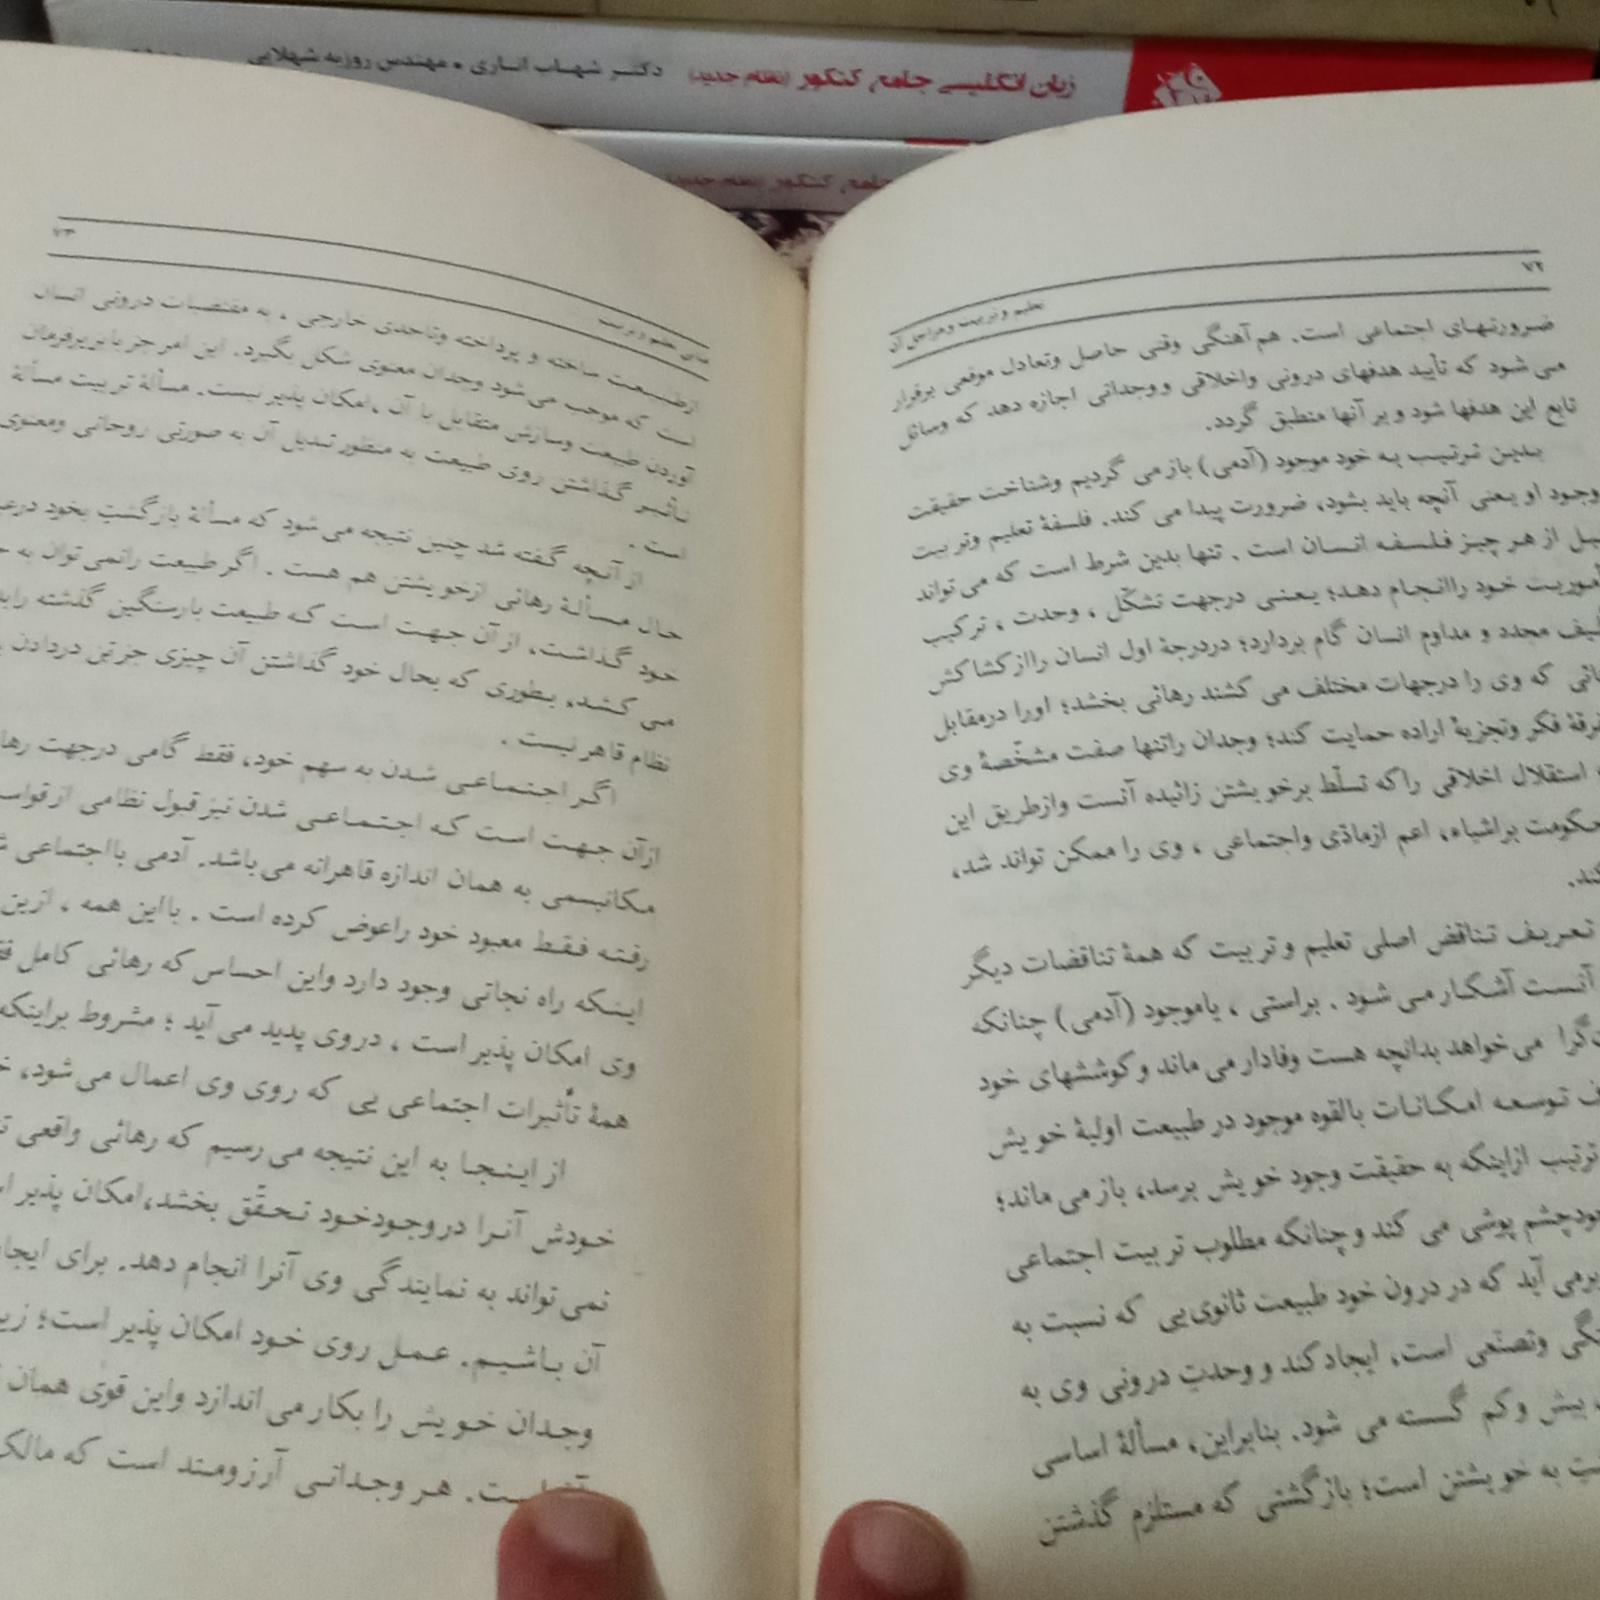 زبان انگلیسی جامع کنکور (نظام جدید) دکتر شهاب اناری • مهندس روزبه شهلایی
جامع کنکور (نظام جدید)
۷۲
تعلیم و تربیت و مراحل آن
ضرورتهای اجتماعی است. هم آهنگی وقتی حاصل وتعادل موقعی برقرار
می شود که تأیید هدفهای درونی واخلاقی ووجدانی اجازه دهد که وسائل
تابع این هدفها شود و بر آنها منطبق گردد.
بدین ترتیب به خود موجود (آدمی) باز می گردیم وشناخت حقیقت
وجود او یعنی آنچه باید بشود، ضرورت پیدا می کند. فلسفهٔ تعلیم وتربیت
از هر چیز فلسفه انسان است . تنها بدین شرط است که می تواند
خود راانجام دهد؛ یعنی درجهت تشکّل ، وحدت ، ترکیب
مجدد و مداوم انسان گام بردارد؛ دردرجهٔ اول انسان رااز کشاکش
که وی را درجهات مختلف می کشند رهائی بخشد؛ اورا درمقابل
فکر وتجزیهٔ اراده حمایت کند؛ وجدان راتنها صفت مشخّصهٔ وی
استقلال اخلاقی راکه تسلّط برخویشتن زائیده آنست وازطریق این
حکومت براشیاء، اعم ازمادّی واجتماعی ، وی را ممکن تواند شد،
تعریف تناقض اصلی تعلیم و تربیت که همهٔ تناقضات دیگر
آنست آشکار می شود . براستی ، یاموجود (آدمی) چنانکه
می خواهد بدانچه هست وفادار می ماند و کوششهای خود
توسعه امکانات بالقوه موجود در طبیعت اولیهٔ خویش
ترتیب ازاینکه به حقیقت وجود خویش برسد، باز می ماند؛
چشم پوشی می کند و چنانکه مطلوب تربیت اجتماعی
برمی آید که در درون خود طبیعت ثانوی یی که نسبت به
وتصنّعی است، ایجاد کند و وحدتِ درونی وی به
بیش و کم گسسته می شود. بنابراین، مسألهٔ اساسی
به خویشتن است؛ بازگشتی که مستلزم گذشتن
۷۳
تعلیم و تربیت
ازطبیعت ساخته و پرداخته وتاحدی خارجی ، به مقتضیات درونی انسان
است که موجب می شود وجدان معنوی شکل بگیرد. این امر جز با بزیرفرمان
آوردن طبیعت وسازش متقابل با آن ،امکان پذیر نیست. مسألهٔ تربیت مسألهٔ
تأثیر گذاشتن روی طبیعت به منظور تبدیل آن به صورتی روحانی ومعنوی
است .
از آنچه گفته شد چنین نتیجه می شود که مسألهٔ بازگشتِ بخود
حال مسألهٔ رهائی ازخویشتن هم هست . اگر طبیعت رانمی توان به
خود گذاشت، از آن جهت است که طبیعت بارسنگین گذشته
می کشد، بطوری که بحال خود گذاشتن آن چیزی جز تن دردادن
نظام قاهر نیست .
اگر اجتماعی شدن به سهم خود، فقط گامی درجهت
ازآن جهت است که اجتماعی شدن نیز قبول نظامی از
مکانیسمی به همان اندازه قاهرانه می باشد. آدمی بااجتماعی
رفته فقط معبود خود راعوض کرده است . بااین همه ، ازین
اینکه راه نجاتی وجود دارد واین احساس که رهائی کامل
وی امکان پذیر است ، دروی پدید می آید ؛ مشروط براینکه
همهٔ تأثیرات اجتماعی یی که روی وی اعمال می شود،
از اینجا به این نتیجه می رسیم که رهائی واقعی
خودش آنرا در وجود خود تحقّق بخشد،امکان پذیر
نمی تواند به نمایندگی وی آنرا انجام دهد. برای
آن باشیم. عمل روی خود امکان پذیر است؛
وجدان خویش را بکار می اندازد واین قوی همان
هر وجدانی آرزومند است که